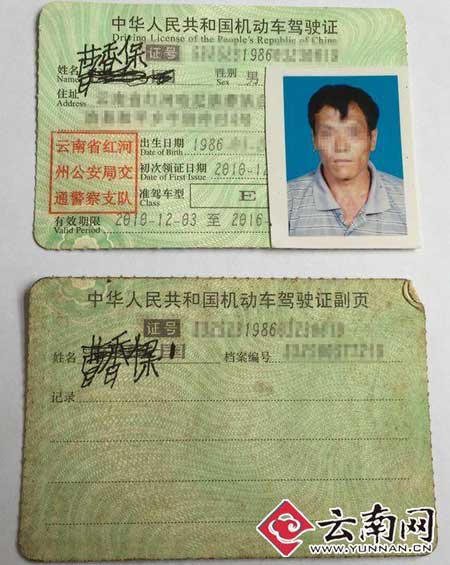 中华人民共和国机动车驾驶证
Driving License of the People's Republic of China
证号 1986
姓名 曹香保 性别 男
Name Sex
住址
Address
云南省红河
州公安局交
通警察支队
出生日期 1986
Date of Birth
初次领证日期 2010-12
Date of First Issue
准驾车型 E
Class
有效期限 2010-12-03 至 2016-
Valid Period
中华人民共和国机动车驾驶证副页
证号 1986
姓名 曹香保 档案编号
记录
云南网
WWW.YUNNAN.CN